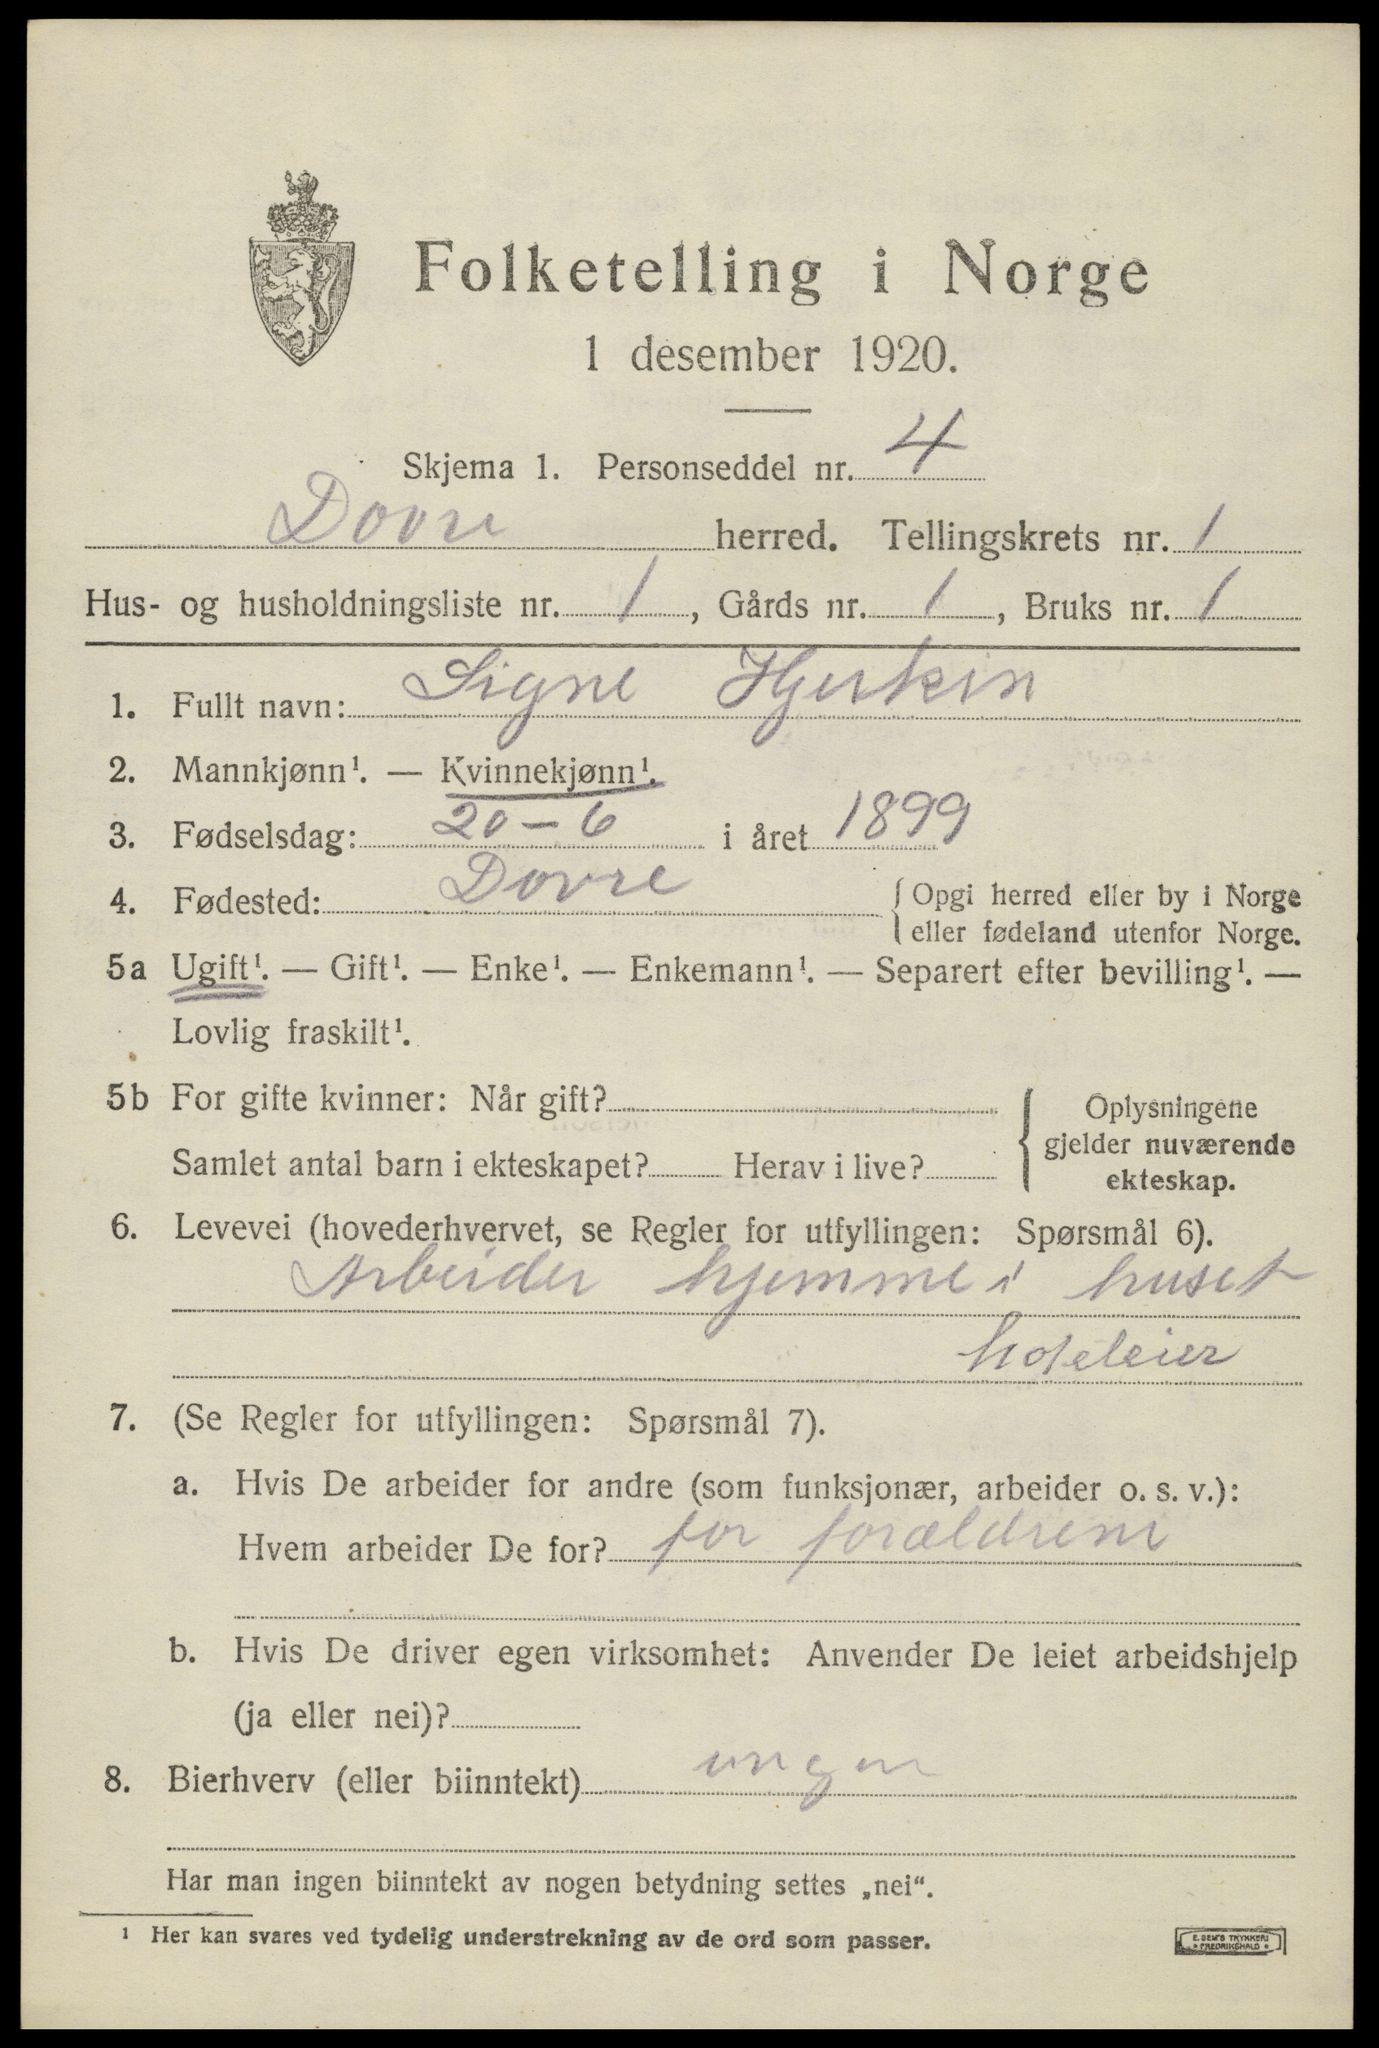 Folketelling i Norge
1 desember 1920.
Skjema 1. Personseddel nr. 4
Dovre herred. Tellingskrets nr. 1
Hus- og husholdningsliste nr. 1, Gårds nr. 1, Bruks nr. 1
1. Fullt navn: Signe Hjerkin
2. Mannkjønn¹. — Kvinnekjønn¹.
3. Fødselsdag: 20-6 i året 1899
4. Fødested: Dovre { Opgi herred eller by i Norge
eller fødeland utenfor Norge.
5a Ugift¹. — Gift¹. — Enke¹. — Enkemann¹. — Separert efter bevilling¹. —
Lovlig fraskilt¹.
5b For gifte kvinner: Når gift?
Samlet antal barn i ekteskapet? Herav i live?
{ Oplysningene
gjelder nuværende
ekteskap.
6. Levevei (hovederhvervet, se Regler for utfyllingen: Spørsmål 6).
Arbeider hjemme i huset
hoteleier
7. (Se Regler for utfyllingen: Spørsmål 7).
a. Hvis De arbeider for andre (som funksjonær, arbeider o. s. v.):
Hvem arbeider De for? for forældrene
b. Hvis De driver egen virksomhet: Anvender De leiet arbeidshjelp
(ja eller nei)?
8. Bierhverv (eller biinntekt) ingen
Har man ingen biinntekt av nogen betydning settes „nei“.
¹ Her kan svares ved tydelig understrekning av de ord som passer.
E. SEM'S TRYKKERI
FREDRIKSHALD